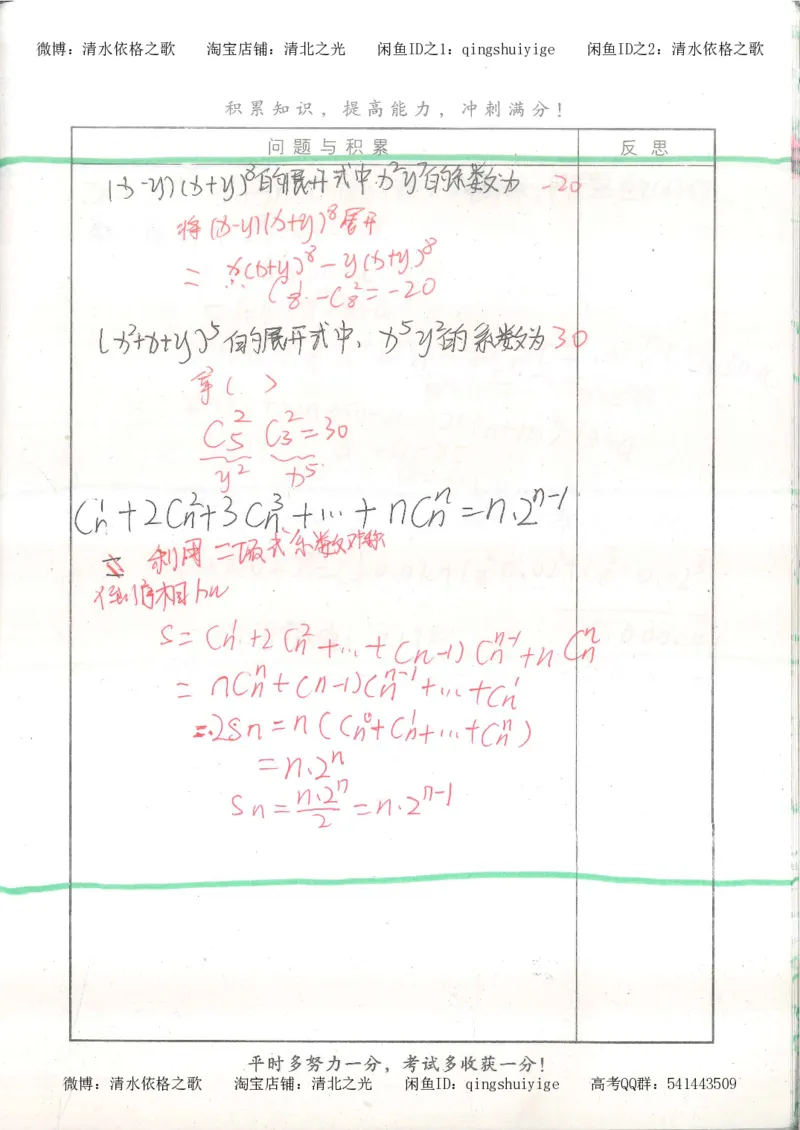 微博：清水依格之歌 淘宝店铺：清北之光 闲鱼ID之1：qingshuiyige 闲鱼ID之2：清水依格之歌
积累知识，提高能力，冲刺满分！
问题与积累 反思
(x-y)(x+y)⁸的展开式中x²y⁷的系数为 -20
将(x-y)(x+y)⁸展开
= x(x+y)⁸-y(x+y)⁸
∴ C₈¹-C₈²=-20
(x²+x+y)⁵的展开式中，x⁵y²的系数为30
( )
C₅² C₃²=30
y² x⁵
Cₙ¹+2Cₙ²+3Cₙ³+…+nCₙⁿ=n.2ⁿ⁻¹
利用二项式系数对称
倒序相加
S=Cₙ¹+2Cₙ²+…+(n-1)Cₙⁿ⁻¹+nCₙⁿ
=nCₙⁿ+(n-1)Cₙⁿ⁻¹+…+Cₙ¹
2Sn=n(Cₙ⁰+Cₙ¹+…+Cₙⁿ)
=n.2ⁿ
Sn=n.2ⁿ/2=n.2ⁿ⁻¹
平时多努力一分，考试多收获一分！
微博：清水依格之歌 淘宝店铺：清北之光 闲鱼ID：qingshuiyige 高考QQ群：541443509